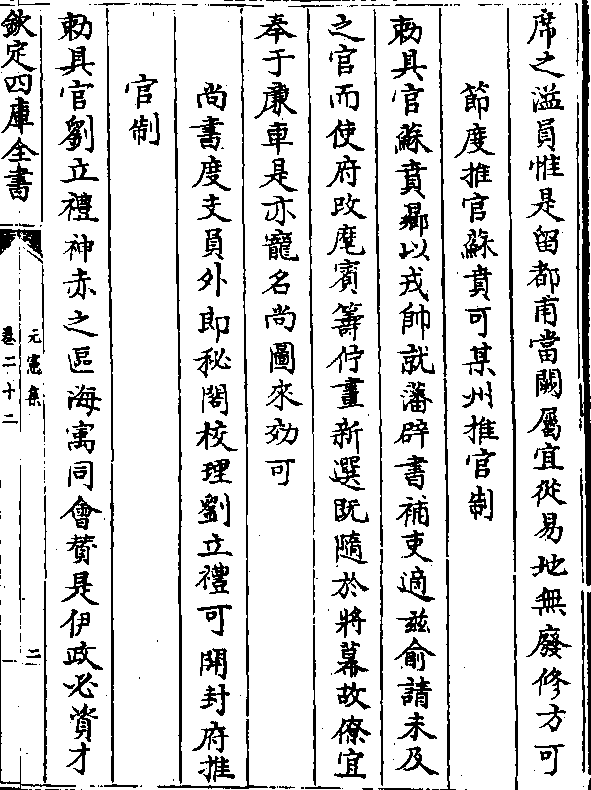 席之溢員惟是留都甫當闕屬宜從易地無廢修方可
節度推官蘇賁可某州推官制
勅具官蘇賁曏以戎帥就藩辟書補吏適玆俞請未及
之官而使府改麾賓籌佇畫新選既隨於將幕故僚宜
奉于廉車是亦寵名尚圖來効可
尚書度支員外郎秘閣校理劉立禮可開封府推
官制
勅具官劉立禮神赤之區海寓同會贊是伊政必資才
欽定四庫全書
元憲集
卷二十二
二